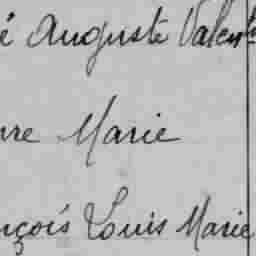 é Auguste Valent
re Marie
nçois Louis Marie